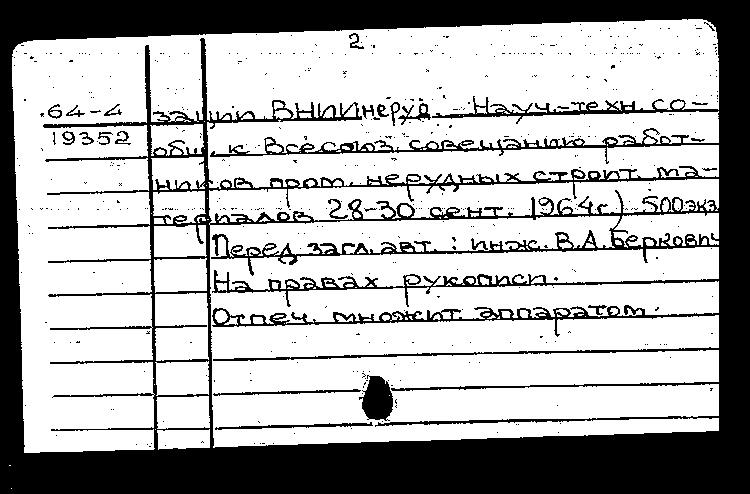 2.
64-4
19352
зации ВНИИнеруд. - Науч.-техн. со-
общ. к Всесоюз. совещанию работ-
ников пром. нерудных строит. ма-
териалов 28-30 сент. 1964г.) 500экз
Перед загл. авт.: инж. В.А. Беркович
На правах рукописи.
Отпеч. множит. аппаратом.